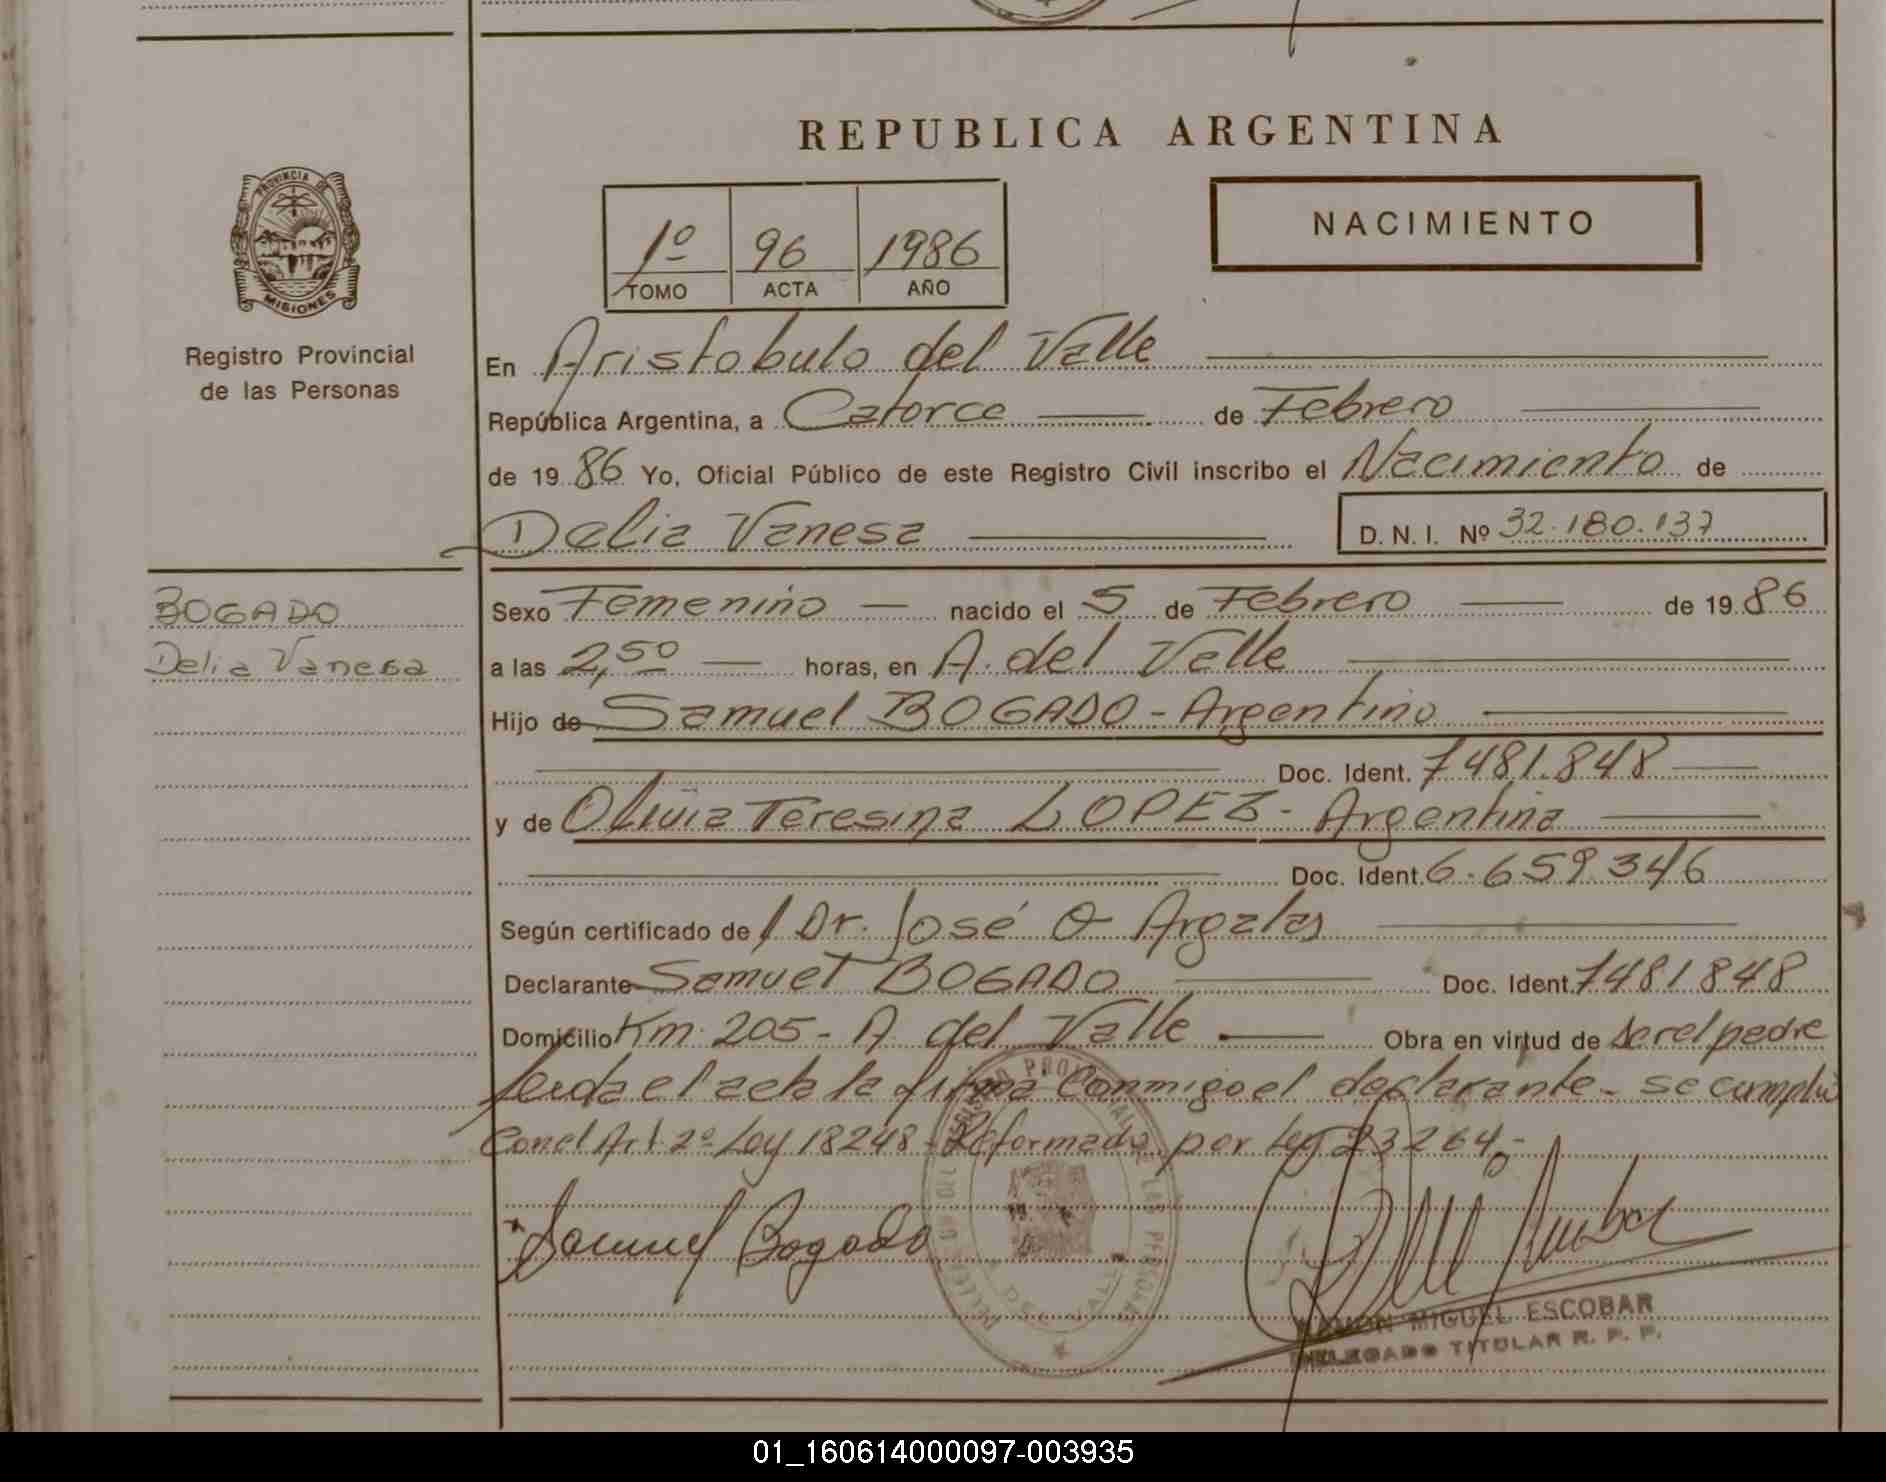 REPUBLICA ARGENTINA
PROVINCIA DE
MISIONES
Registro Provincial
de las Personas
1º 96 1986
TOMO ACTA AÑO
NACIMIENTO
En Aristobulo del Valle
República Argentina, a Catorce de Febrero
de 19 86 Yo, Oficial Público de este Registro Civil inscribo el Nacimiento de
Delia Vanesa D. N. I. Nº 32.180.137
BOGADO
Delia Vanesa
Sexo Femenino nacido el 5 de Febrero de 19 86
a las 2,50 horas, en A. del Valle
Hijo de Samuel BOGADO - Argentino
Doc. Ident. 7481.848
y de Olivia Teresina LOPEZ - Argentina
Doc. Ident. 6.659.346
Según certificado de Dr. José O Argalas
Declarante Samuel BOGADO Doc. Ident. 7481848
Domicilio Km. 205 - A. del Valle Obra en virtud de ser el padre
Leida el acta la firma conmigo el declarante - se cumplió
con el Art. 2º Ley 18248 - Reformada por Ley 23264.-
Samuel Bogado
RAMON MIGUEL ESCOBAR
DELEGADO TITULAR R. P. P.
01_160614000097-003935